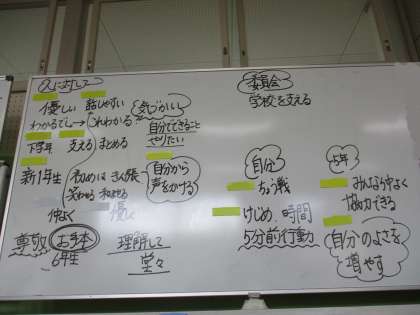 人に対して
優しい 話しやすい
わかるでしょ→これわかる?
下学年 支える まとめる
新1年生 初めはきん張
笑わせる 和ませる
仲よく 優しく
尊敬 お手本
6年生
気づかい
自分でできること
やりたい
自分から
声をかける
理解して
堂々
委員会
学校を支える
自分
ちょう戦
けじめ 時間
5分前行動
5年
みんな仲よく
協力できる
自分のよさを
増やす